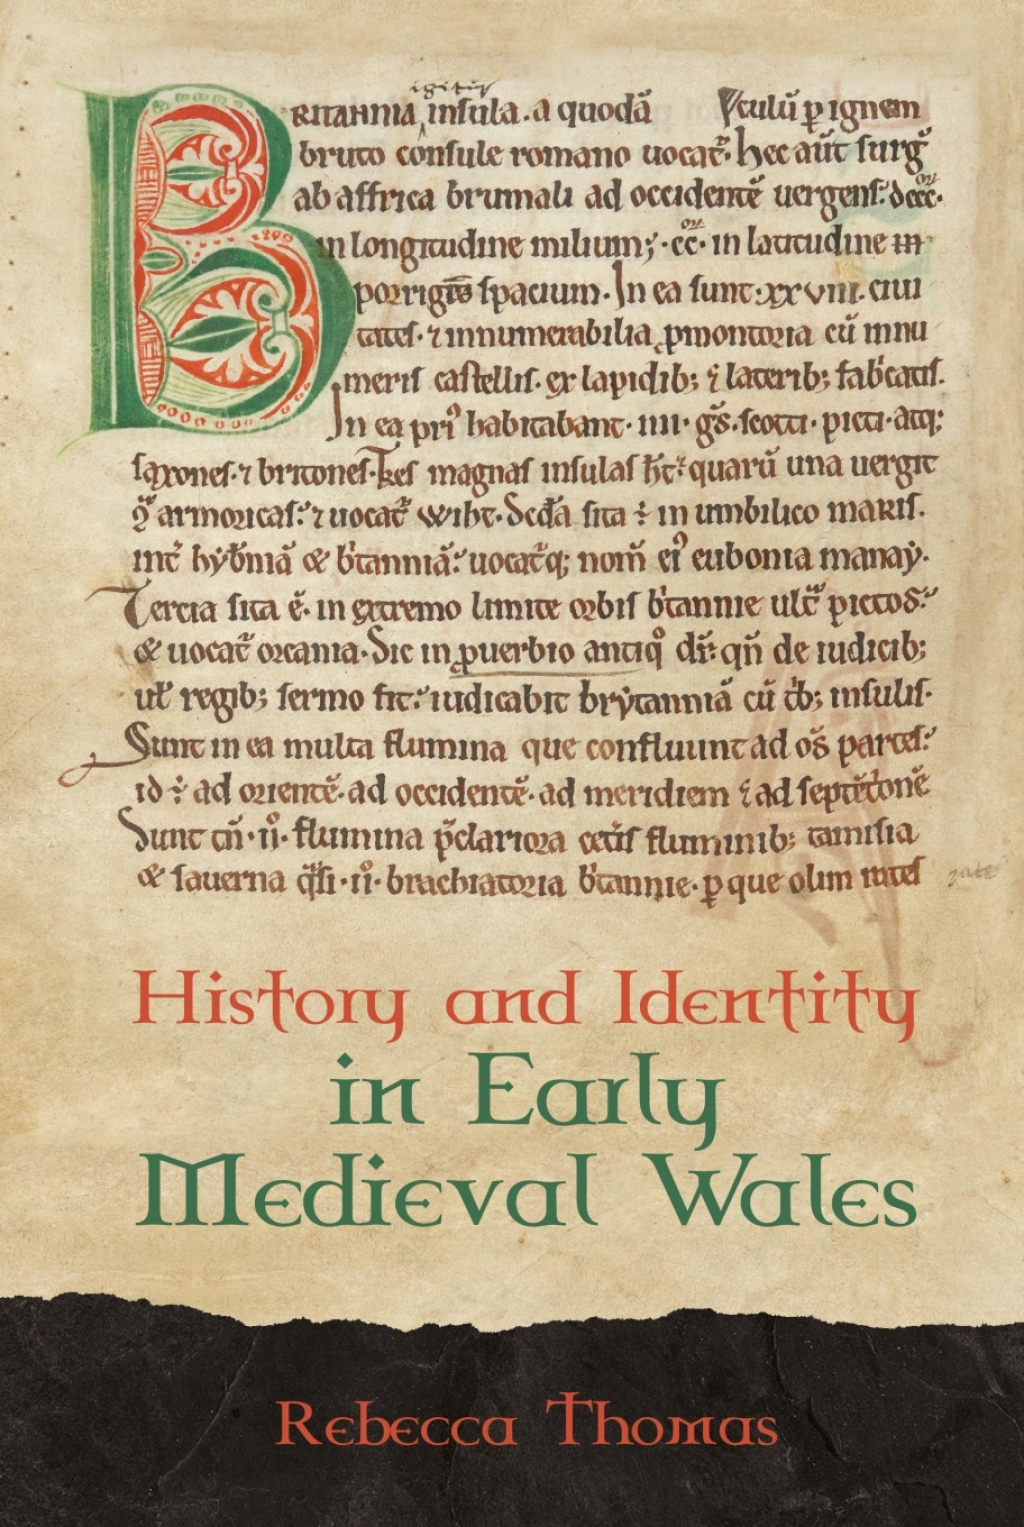 igitur
BRITANNIA insula. a quodā
bruto consule romano uocat᷑. hec aūt surg̃
ab affrica brumali ad occidentē uergens. dccc.
in longitudine milium; .cc. in latitudine in
porrigit̄ spacium. In ea sunt .xxviii. ciui
tates. ⁊ innumerabilia ꝓmontoria cū innu
meris castellis. ex lapidib; ⁊ laterib; fab͛catis.
In ea pri᷒ habitabant. iiii. gs̄. scotti. picti. atq;
saxones. ⁊ britones. Tres magnas insulas ht̄. quarū una uergit
armoricas. ⁊ uocat᷑ wiht. Scd̄a sita ÷ in umbilico maris.
int͛ hyb͛niā & b͛tanniā. uocat᷑q; nom̄ ei᷒ eubonia manaẏ.
Tercia sita ē. in extremo limite orbis b͛tannie ult͛
& uocat᷑ orcania. Sic in ꝓuerbio antiqº dr̄. qn̄ de iudicib;
ul̄ regib; sermo fit. iudicabit brẏtanniā cū insulis.
Sunt in ea multa flumina que confluunt ad os̄ partes.
id ÷ ad orientē. ad occidentē. ad meridiem ⁊ ad
Sunt tn̄ .ii. flumina p̄clariora fluminib; tamisia
& sauerna .ii. brachiatoria b͛tannie. ꝑ que olim rates
ꝑ ignem
History and Identity
in Early
Medieval Wales
Rebecca Thomas